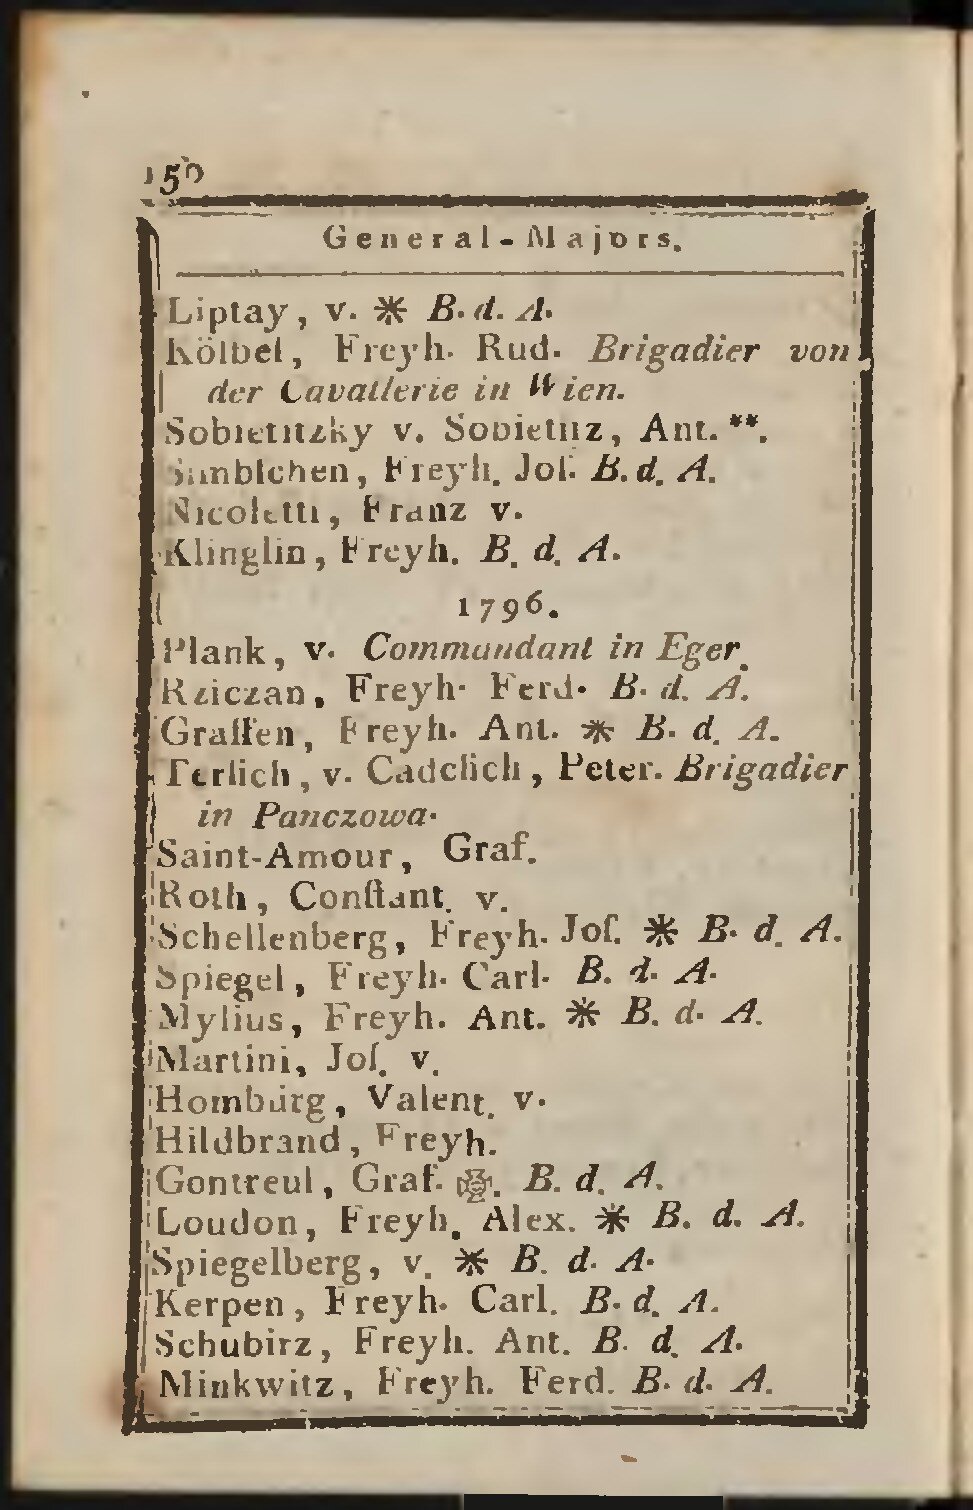 150
General-Majors.
Liptay, v. ※ B. d. A.
Kölbel, Freyh. Rud. Brigadier von
der Cavallerie in Wien.
Sobietitzky v. Sobietitz, Ant. **.
Simbschen, Freyh. Jos. B. d. A.
Nicoletti, Franz v.
Klinglin, Freyh. B. d. A.
1796.
Plank, v. Commandant in Eger.
Rziczan, Freyh. Ferd. B. d. A.
Graffen, Freyh. Ant. ※ B. d. A.
Terlich, v. Cadclich, Peter. Brigadier
in Panczowa.
Saint-Amour, Graf.
Roth, Conſtant. v.
Schellenberg, Freyh. Joſ. ※ B. d. A.
Spiegel, Freyh. Carl. B. d. A.
Mylius, Freyh. Ant. ※ B. d. A.
Martini, Joſ. v.
Homburg, Valent. v.
Hildbrand, Freyh.
Gontreul, Graf. ✠. B. d. A.
Loudon, Freyh. Alex. ※ B. d. A.
Spiegelberg, v. ※ B. d. A.
Kerpen, Freyh. Carl. B. d. A.
Schubirz, Freyh. Ant. B. d. A.
Minkwitz, Freyh. Ferd. B. d. A.